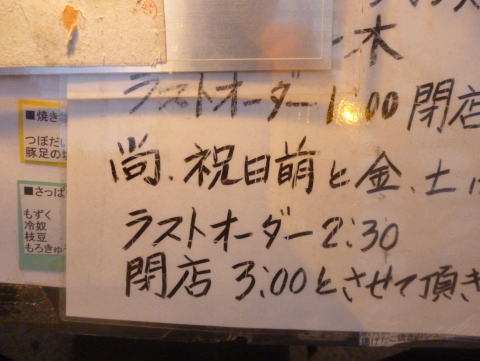 木
ラストオーダー1:00 閉店
尚、祝日萌と金、土
ラストオーダー 2:30
閉店 3:00とさせて頂き
■焼き
つぼだい
豚足の
■さっぱ
もずく
冷奴
枝豆
もろきゅう